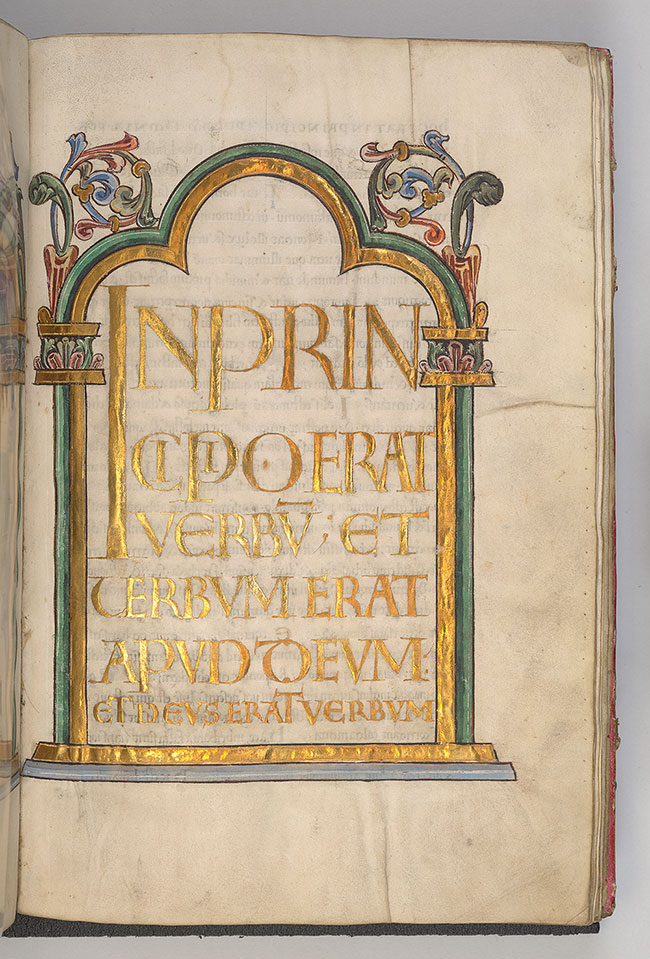 INPRIN
CIPIO ERAT
VERBŪ; ET
VERBVM ERAT
APVD DEVM:
ET DEVS ERAT VERBVM